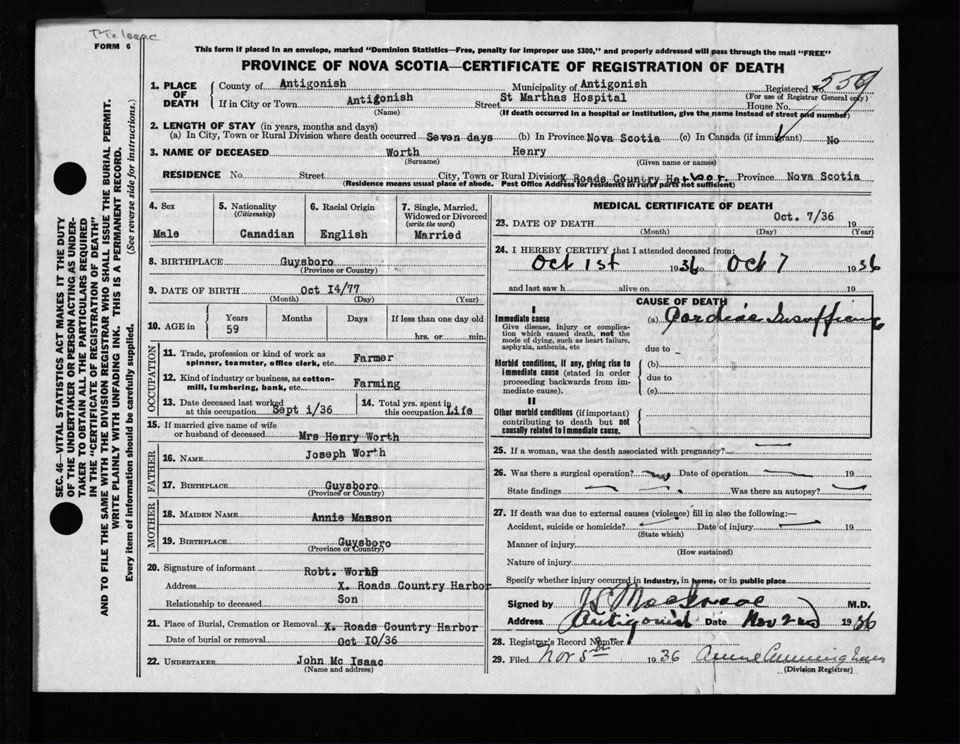 Mc Isaac
FORM 6
This form if placed in an envelope, marked "Dominion Statistics—Free, penalty for improper use $300," and properly addressed will pass through the mail "FREE"
PROVINCE OF NOVA SCOTIA—CERTIFICATE OF REGISTRATION OF DEATH
SEC. 46—VITAL STATISTICS ACT MAKES IT THE DUTY
OF THE UNDERTAKER OR PERSON ACTING AS UNDER-
TAKER TO OBTAIN ALL THE PARTICULARS REQUIRED
IN THE "CERTIFICATE OF REGISTRATION OF DEATH"
AND TO FILE THE SAME WITH THE DIVISION REGISTRAR WHO SHALL ISSUE THE BURIAL PERMIT.
WRITE PLAINLY WITH UNFADING INK. THIS IS A PERMANENT RECORD.
Every item of information should be carefully supplied. (See reverse side for instructions.)
1. PLACE OF DEATH County of Antigonish Municipality of Antigonish Registered No. 559
(For use of Registrar General only)
If in City or Town Antigonish Street St Marthas Hospital House No.
(Name) (If death occurred in a hospital or institution, give the name instead of street and number)
2. LENGTH OF STAY (in years, months and days)
(a) In City, Town or Rural Division where death occurred Seven days (b) In Province Nova Scotia (c) In Canada (if immigrant) No
3. NAME OF DECEASED Worth Henry
(Surname) (Given name or names)
RESIDENCE No. Street City, Town or Rural Division X Roads Country Harbor. Province Nova Scotia
(Residence means usual place of abode. Post Office Address for residents in rural parts not sufficient)
4. Sex 5. Nationality 6. Racial Origin 7. Single, Married,
(Citizenship) Widowed or Divorced
(write the word)
Male Canadian English Married
8. BIRTHPLACE Guysboro
(Province or Country)
9. DATE OF BIRTH Oct 14/77
(Month) (Day) (Year)
10. AGE in Years Months Days If less than one day old
59 hrs. or min.
OCCUPATION
11. Trade, profession or kind of work as
spinner, teamster, office clerk, etc. Farmer
12. Kind of industry or business, as cotton-
mill, lumbering, bank, etc. Farming
13. Date deceased last worked
at this occupation Sept 1/36
14. Total yrs. spent in
this occupation Life
15. If married give name of wife
or husband of deceased Mrs Henry Worth
FATHER
16. NAME Joseph Worth
17. BIRTHPLACE Guysboro
(Province or Country)
MOTHER
18. MAIDEN NAME Annie Manson
19. BIRTHPLACE Guysboro
(Province or Country)
20. Signature of informant Robt. Worth
Address X. Roads Country Harbor
Relationship to deceased Son
21. Place of Burial, Cremation or Removal X. Roads Country Harbor
Date of burial or removal Oct 10/36
22. UNDERTAKER John Mc Isaac
(Name and address)
MEDICAL CERTIFICATE OF DEATH
23. DATE OF DEATH Oct. 7/36 19
(Month) (Day) (Year)
24. I HEREBY CERTIFY that I attended deceased from:
Oct 1st 1936 to Oct 7 1936
and last saw h alive on 19
CAUSE OF DEATH
I
Immediate cause (a) Cardiac Insufficiency
Give disease, injury or complica-
tion which caused death, not the
mode of dying, such as heart failure,
asphyxia, asthenia, etc due to
Morbid conditions, if any, giving rise to (b)
immediate cause (stated in order due to
proceeding backwards from im-
mediate cause). (c)
II
Other morbid conditions (if important)
contributing to death but not
causally related to immediate cause.
25. If a woman, was the death associated with pregnancy?
26. Was there a surgical operation? no Date of operation 19
State findings Was there an autopsy?
27. If death was due to external causes (violence) fill in also the following:—
Accident, suicide or homicide? Date of injury 19
(State which)
Manner of injury
(How sustained)
Nature of injury
Specify whether injury occurred in industry, in home, or in public place
Signed by M.D.
Address Antigonish Date Nov 2nd 1936
28. Registrar's Record Number
29. Filed Nov 5th 1936 Cunningham
(Division Registrar)